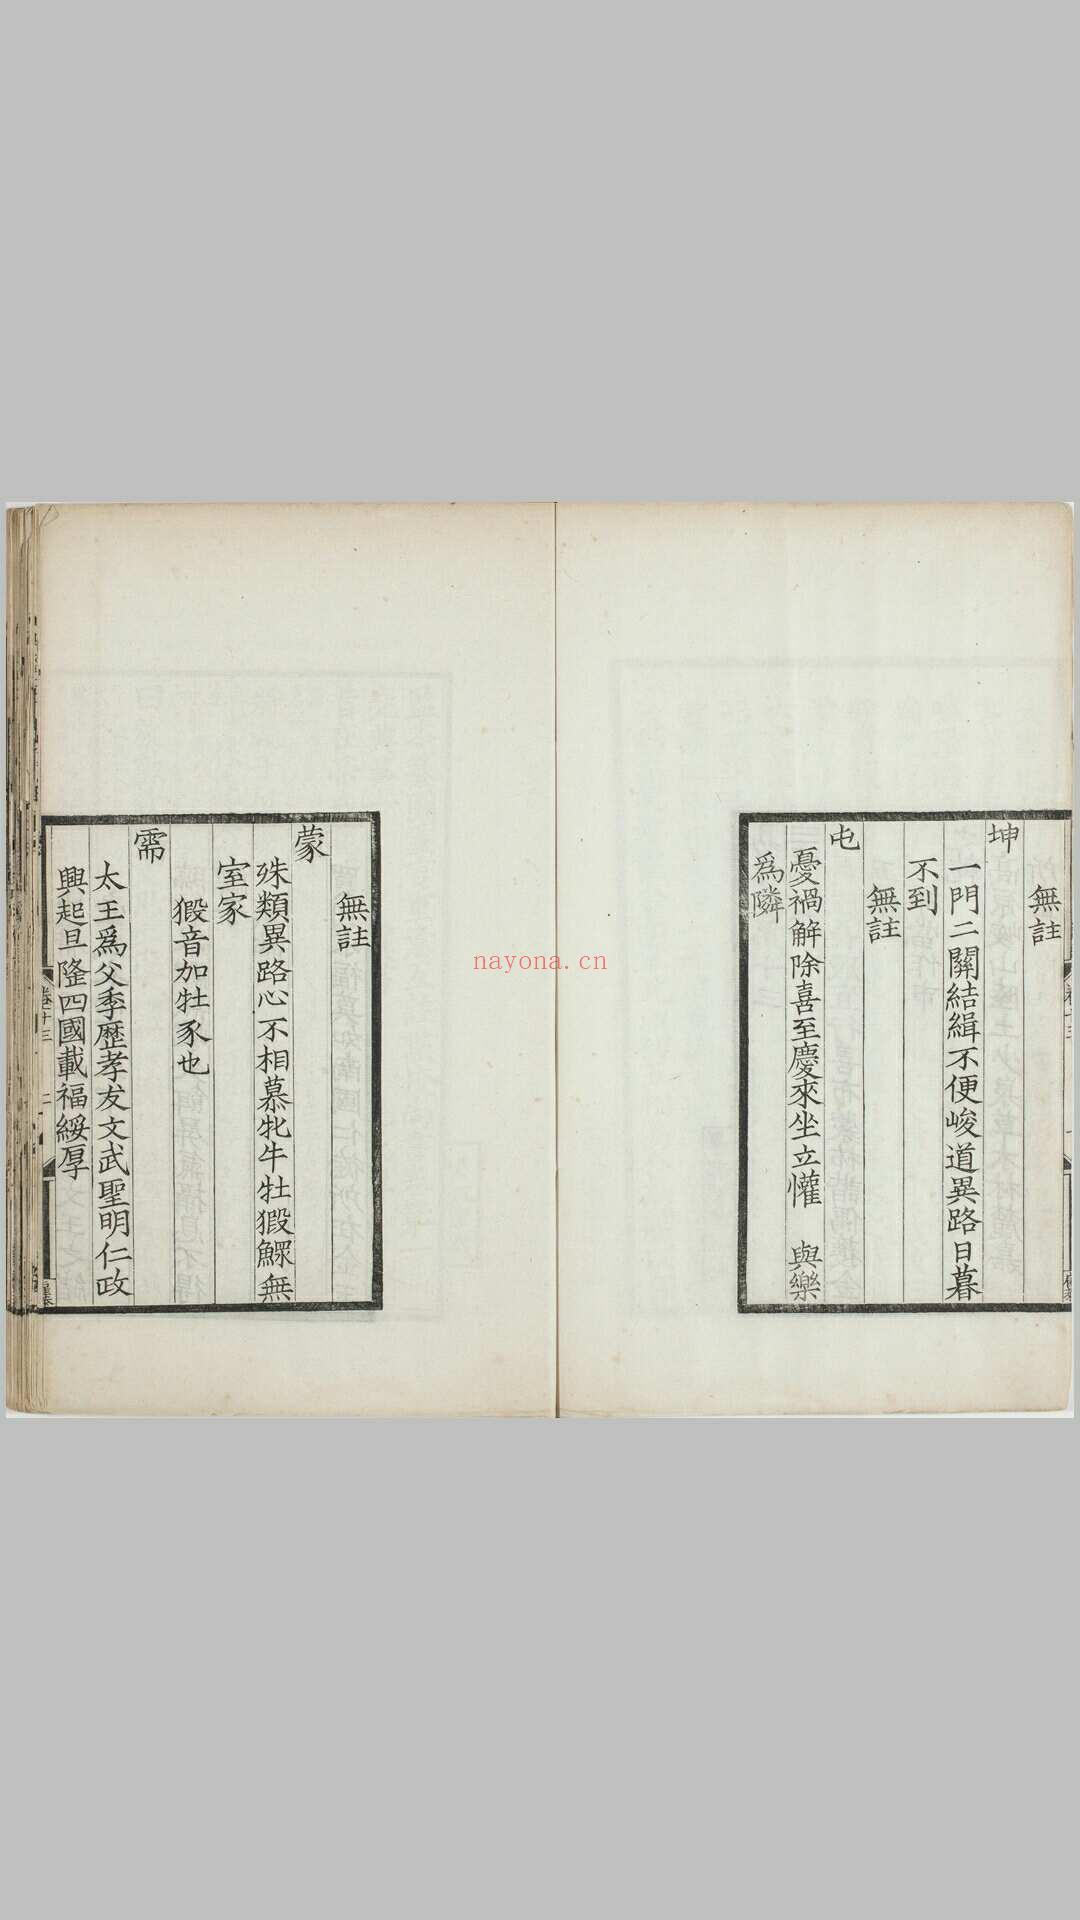 無註
坤
一門二關結緝不便峻道異路日暮
不到
無註
屯
憂禍解除喜至慶來坐立懽 與樂
爲隣
無註
蒙
殊類異路心不相慕牝牛牡猳鰥無
室家
猳音加牡豕也
需
太王爲父季歷孝友文武聖明仁政
興起旦隆四國載福綏厚
卷十三 二
nayona.cn